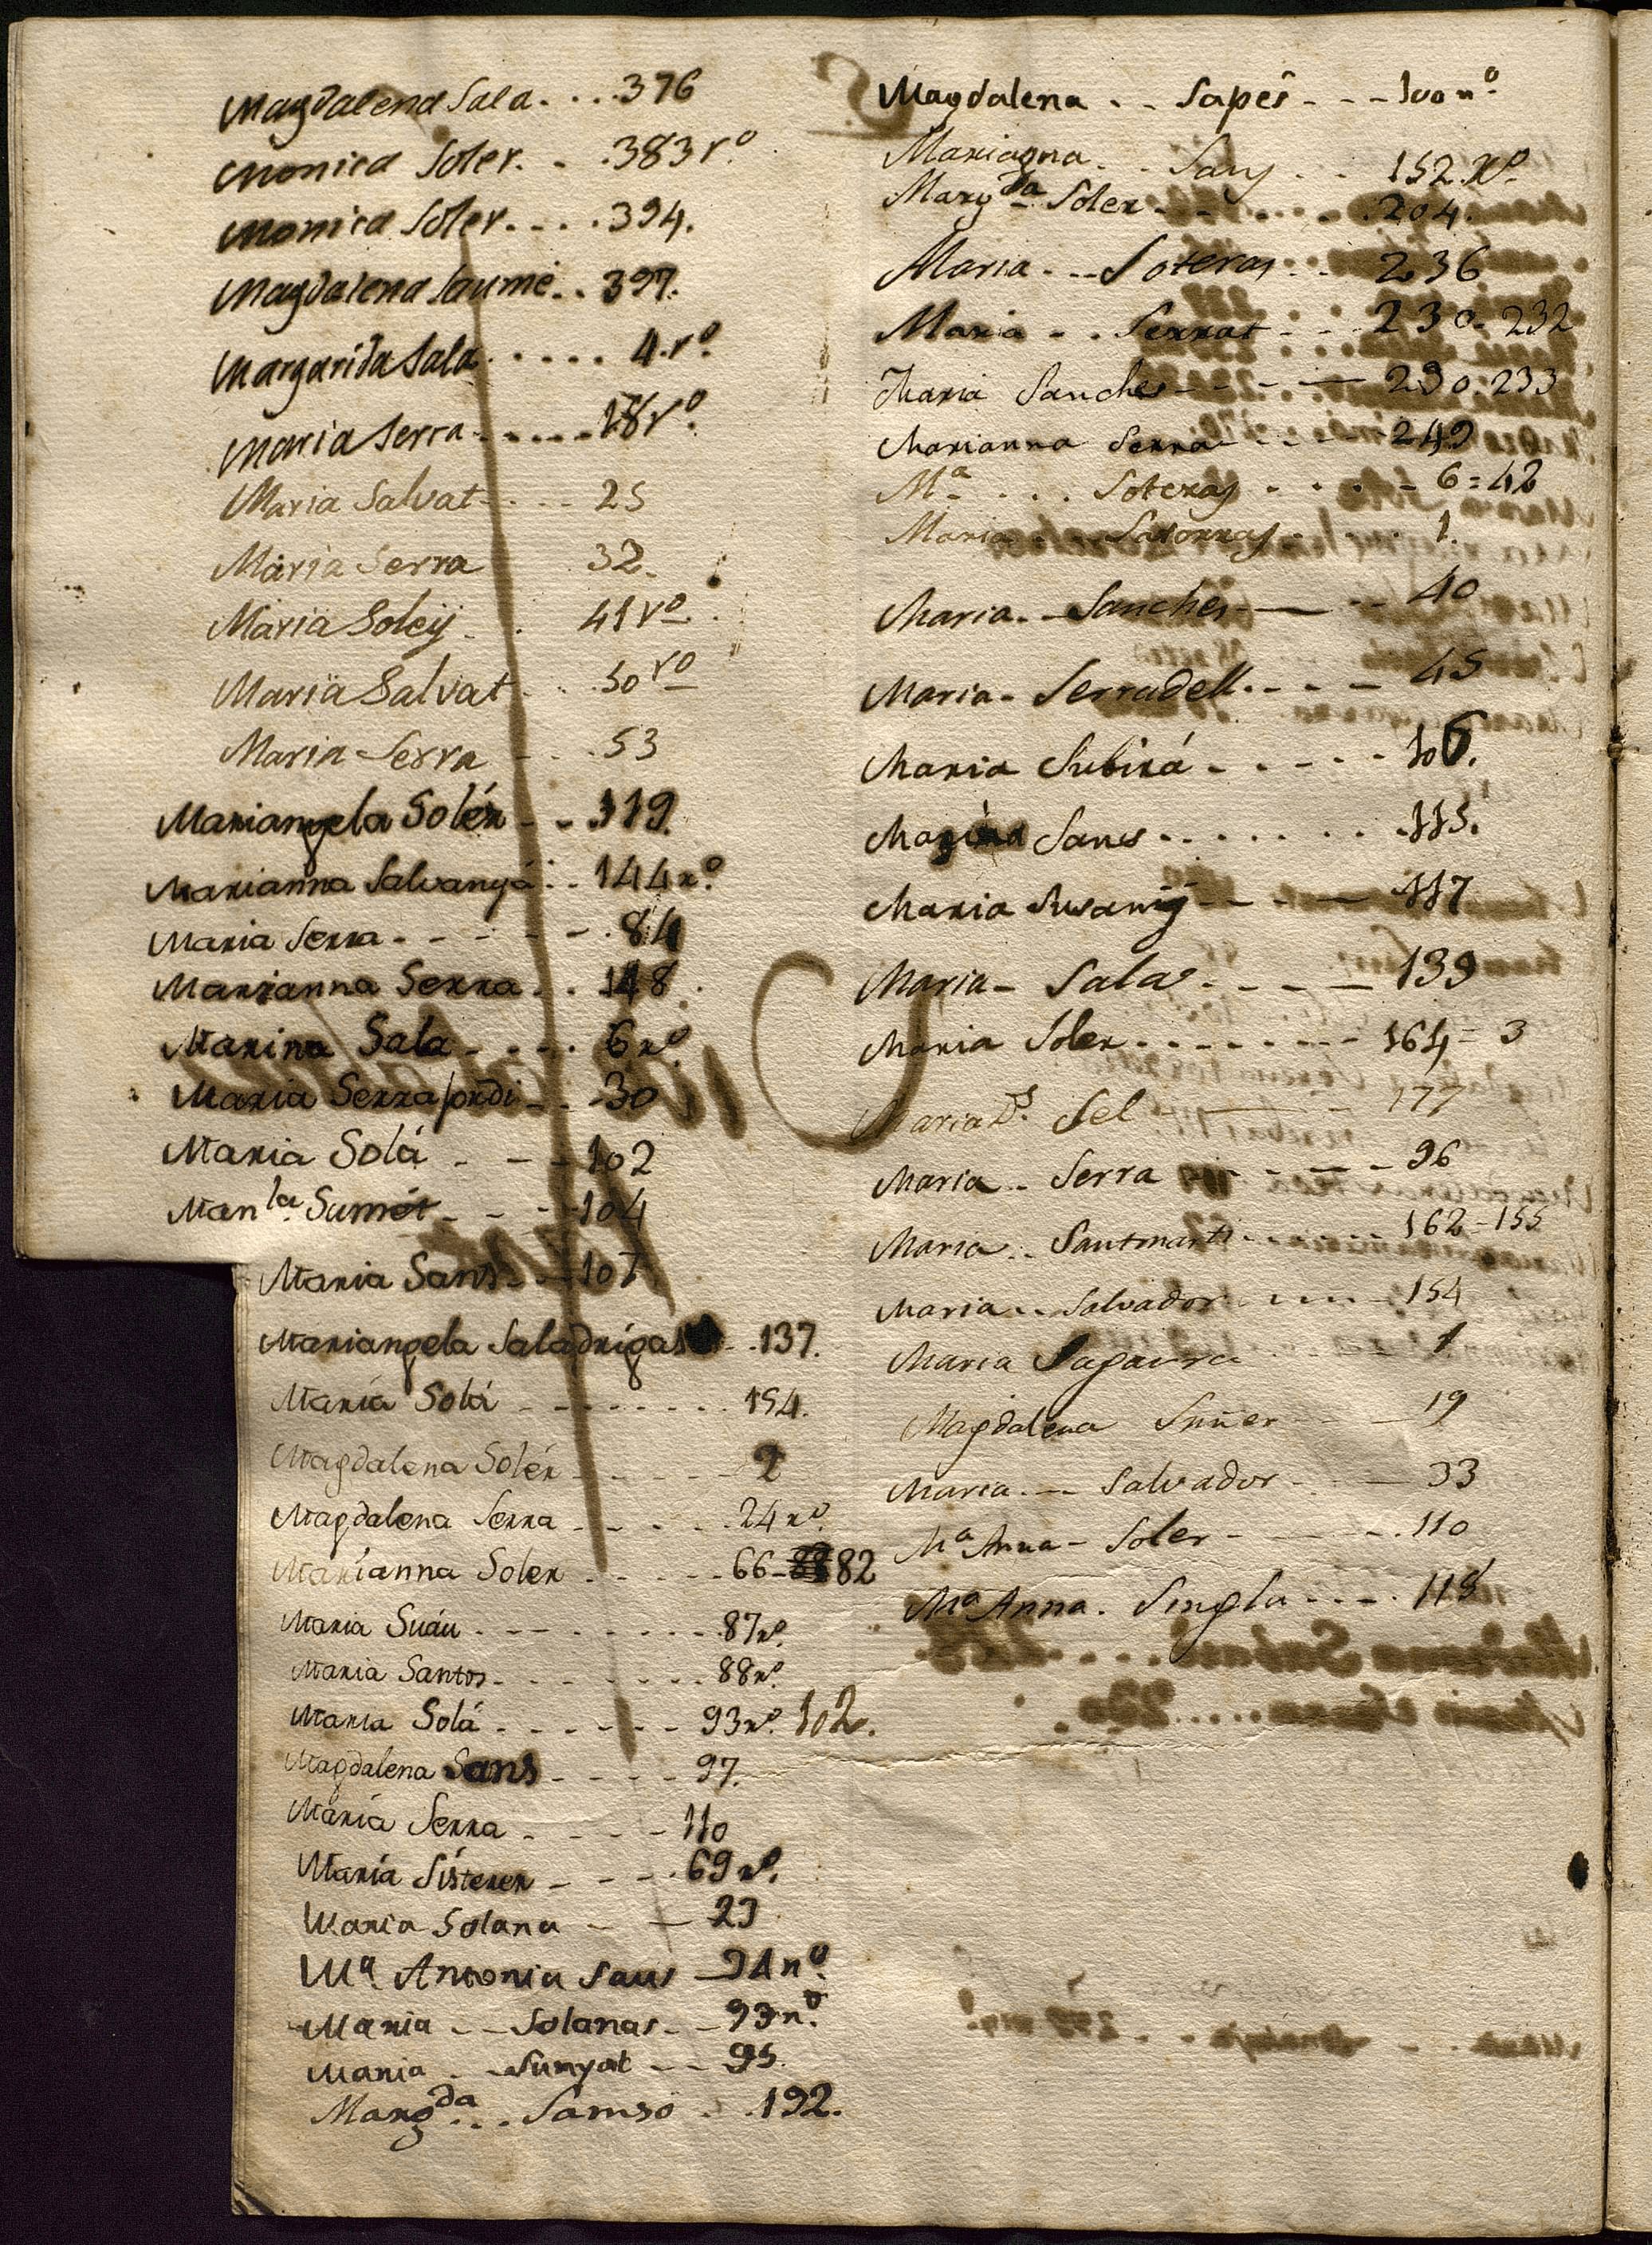 Magdalena Sala. . . . 376
Monica Soler. . . 383 rº.
Monica Soler. . . . 394.
Magdalena Jaume. . 397.
Margarida Sala. . . . . 4. rº.
Maria Serra. . . . . 18 rº.
Maria Salvat - . - - 25
Maria Serra 32.
Maria Soley . . 41 rº
Maria Salvat . . 50 rº
Maria Serra - . . 53
Mariangela Solér - - 119.
Marianna Salvanyá . . 144 rº.
Maria Serra - - - - - . 84
Marianna Serra . . 148.
Marina Sala - . . . 6 rº.
Maria Serrajordi - . - 30
Maria Solá - - - 102
Manla. Sumót - - - 104
Maria Sans - - 107
Mariangela Saladrigas - . 137.
Maria Solá - - - - - - . . 154.
Magdalena Solér - - - - - 2
Magdalena Serra - - - - . 24 rº.
Marianna Soler - - - - - 66 - 82
Maria Suáu . - - - - - - . 87 rº.
Maria Santos - - - - - - . 88 rº.
Maria Solá - - - - - - 93 rº. 102.
Magdalena Sans - - - - 97.
Maria Serra - - - - - 110
Maria Sisterer - - - - . 69 rº.
Maria Solana - - 23
Mª Antonia Saus - 94 rº.
Maria - - Solanas - - 93 rº.
Maria . - Sunyat - - 95.
Margda . . . Samsó . . 192.
Magdalena . - Sapes - - - 100 rº.
Mariagna . . Sauy . . . 152. rº.
Margda Soler - - - . . . . 204.
Maria - - - Soteras . . . 236
Maria - . . Serrat - - - 230. 232
Maria Sanches - - - - - 230. 233
Marianna Serra - - - - 249
Mª . . . Soteras . . . - 6 = 42
Maria . . Saborras . . . 1.
Maria - - Sanches - - - 40
Maria - Serradell. - - - 45
Maria Subirá - - - - - 106.
Sans . . . . . . . 115.
Maria - - - - - 117
Maria - Sala - - - - 139
Maria Soler - - - - - - - 164 = 3
Maria Ds. Sel - - 177
Maria - - Serra - - - - - 96
Maria . . Santmarti . . . . . 162 - 155
Maria . . Salvador . . . . . 154
Maria Sagaura 1
Magdalena Suñer - - 19
Maria. - - Salvador - - - 33
Mª Anna - Soler - - - . 110
Mª Anna. Singla - - - . 118